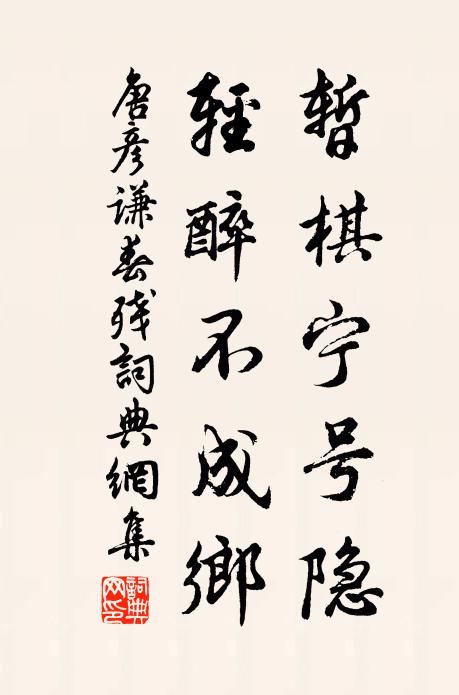 暂棋宁号隐
輕醉不成鄉
唐彦谦春残詞典網集
詞典网印